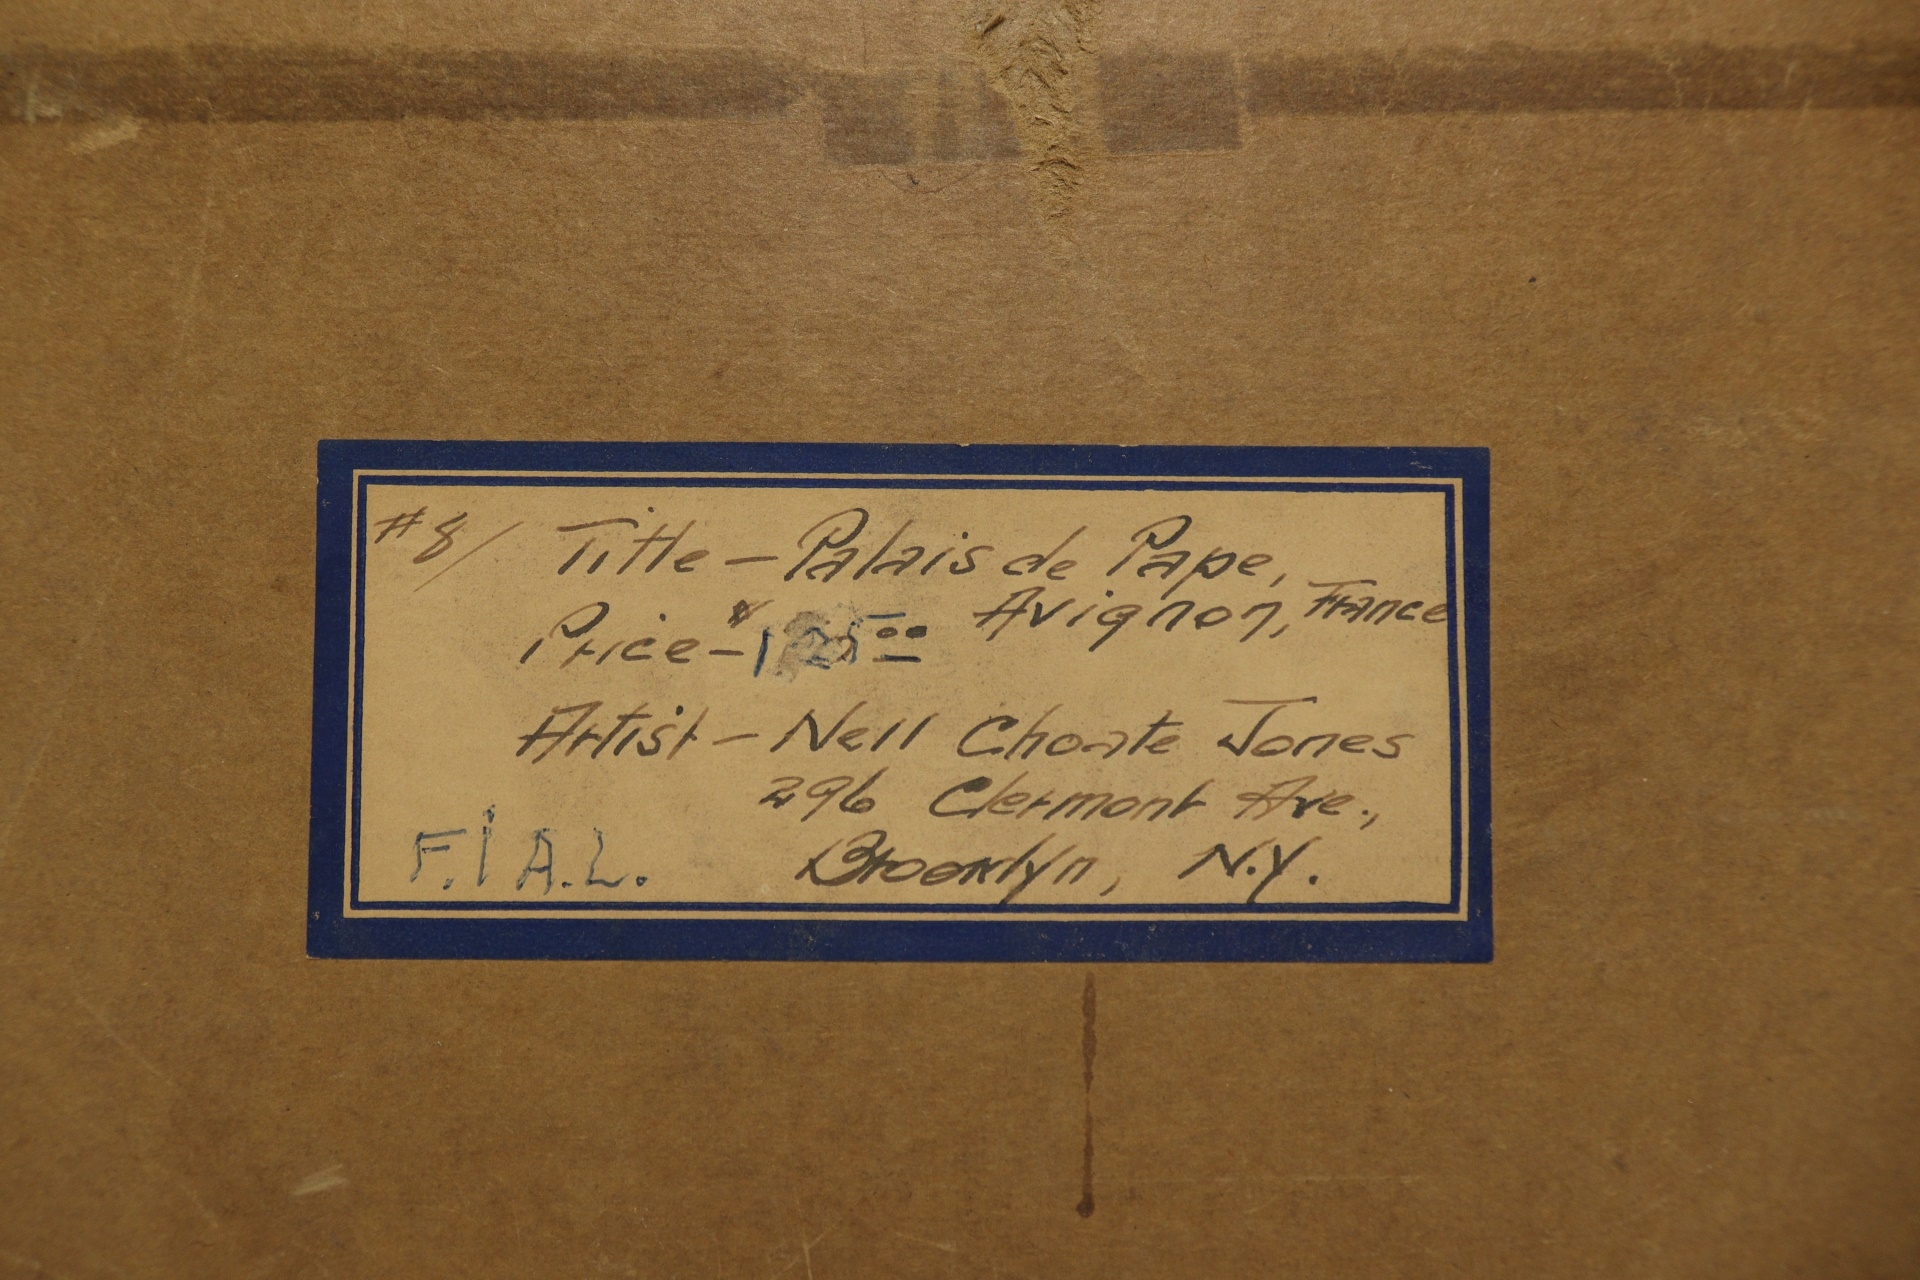 #8/ Title – Palais de Pape,
Avignon, France
Price – $125.00
Artist – Nell Choate Jones
296 Clermont Ave.,
Brooklyn, N.Y.
F.I.A.L.